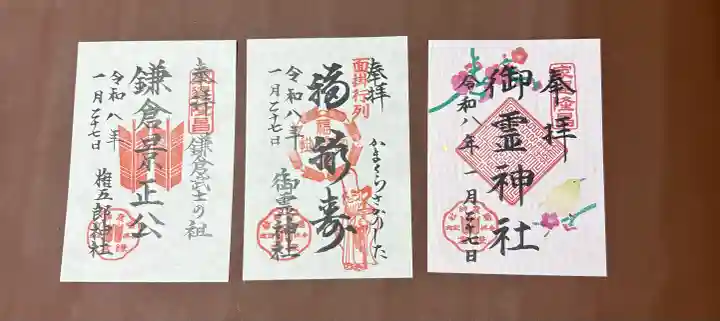 奉拝
鎌倉武士の祖
鎌倉景正公
令和八年
一月二十七日
権五郎神社
奉拝
面掛行列
かまくらさかのした
福禄寿
福
御霊神社
令和八年
一月二十七日
奉拝
御霊神社
令和八年 一月二十七日